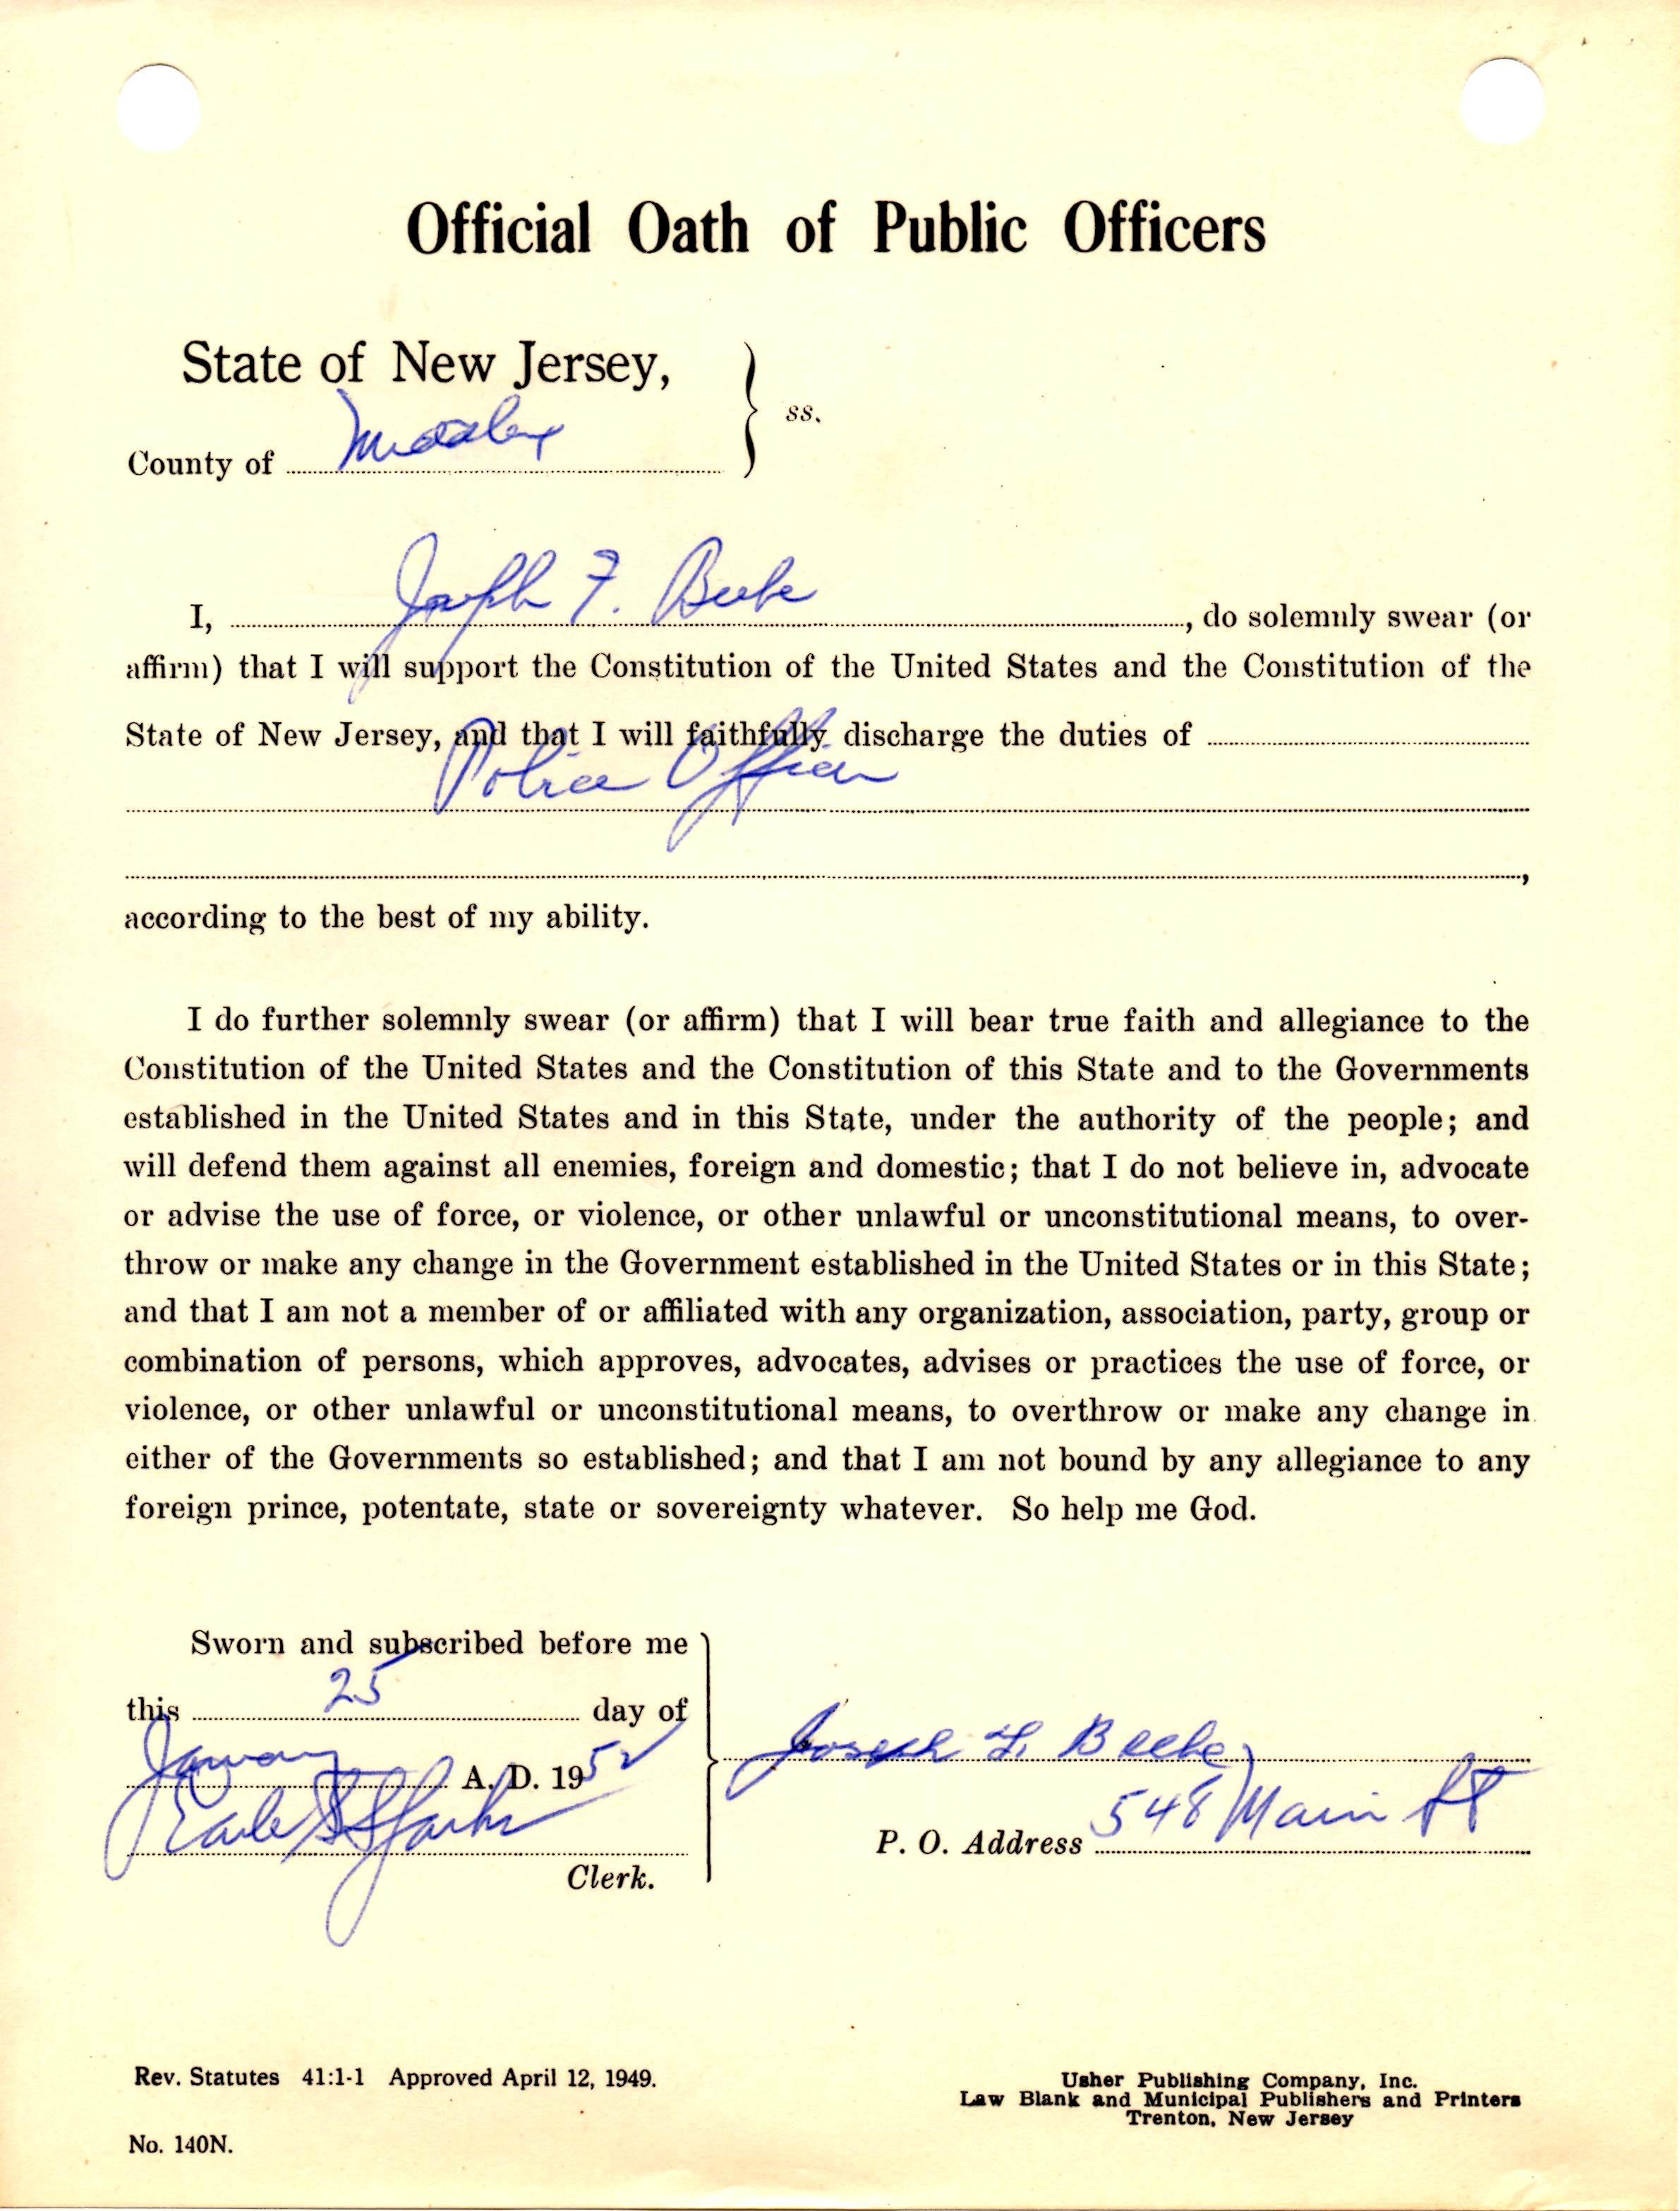 Official Oath of Public Officers
State of New Jersey,
ss.
County of Middlesex
I, Joseph F. Beebe, do solemnly swear (or
affirm) that I will support the Constitution of the United States and the Constitution of the
State of New Jersey, and that I will faithfully discharge the duties of
Police Officer
,
according to the best of my ability.
I do further solemnly swear (or affirm) that I will bear true faith and allegiance to the
Constitution of the United States and the Constitution of this State and to the Governments
established in the United States and in this State, under the authority of the people; and
will defend them against all enemies, foreign and domestic; that I do not believe in, advocate
or advise the use of force, or violence, or other unlawful or unconstitutional means, to over-
throw or make any change in the Government established in the United States or in this State;
and that I am not a member of or affiliated with any organization, association, party, group or
combination of persons, which approves, advocates, advises or practices the use of force, or
violence, or other unlawful or unconstitutional means, to overthrow or make any change in
either of the Governments so established; and that I am not bound by any allegiance to any
foreign prince, potentate, state or sovereignty whatever. So help me God.
Sworn and subscribed before me
this 25 day of
January A. D. 1952
Joseph F. Beebe
Clerk.
P. O. Address 548 Main St
Rev. Statutes 41:1-1 Approved April 12, 1949.
Usher Publishing Company, Inc.
Law Blank and Municipal Publishers and Printers
Trenton, New Jersey
No. 140N.